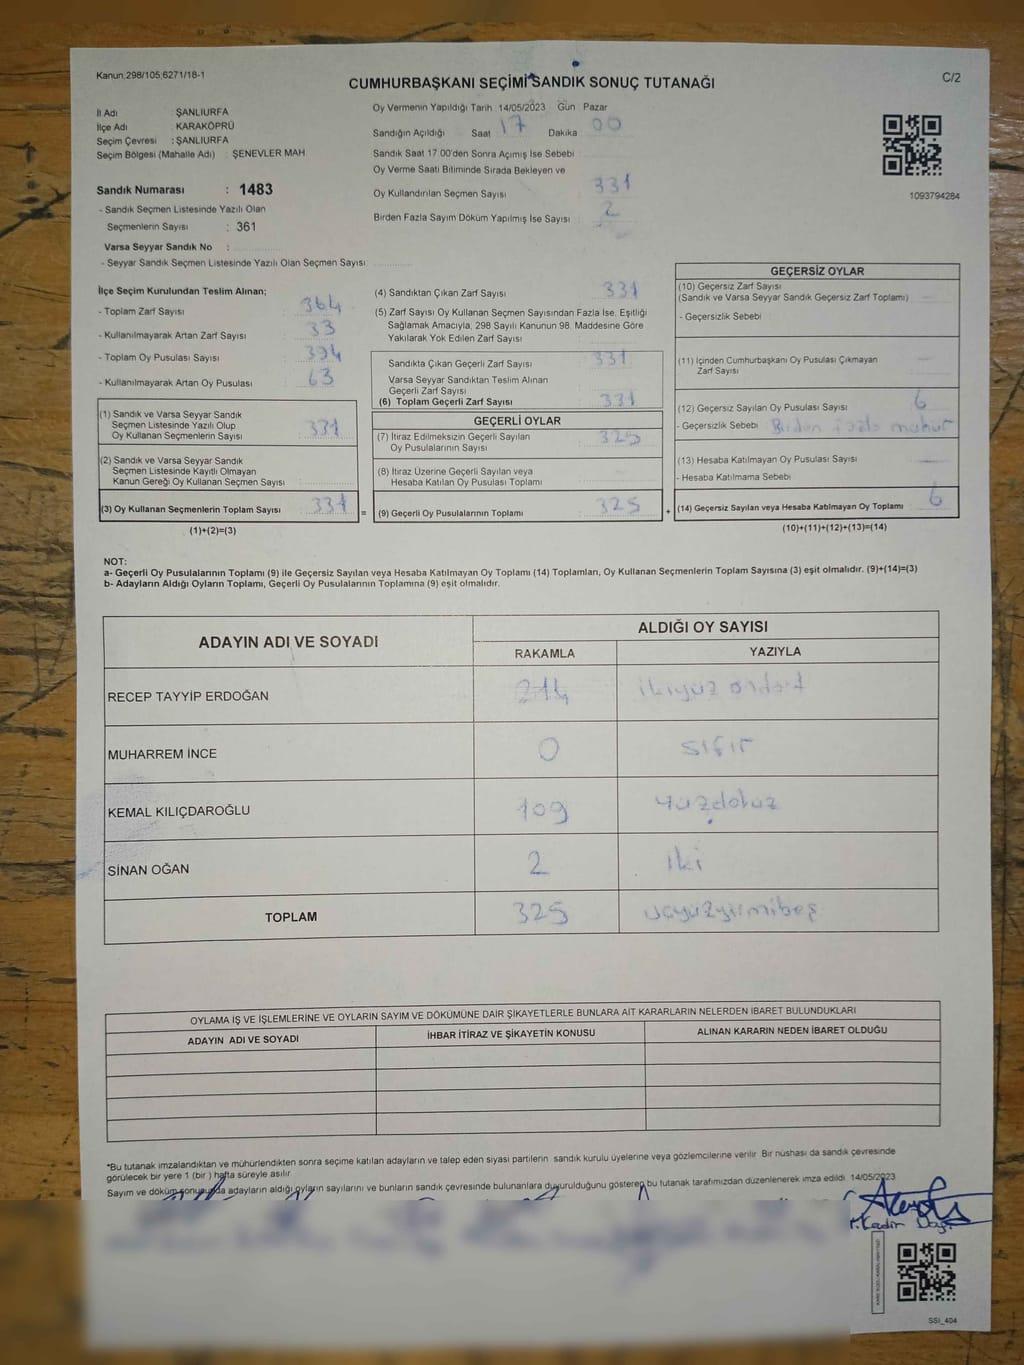 Kanun:298/105;6271/18-1
C/2
CUMHURBAŞKANI SEÇİMİ SANDIK SONUÇ TUTANAĞI
İl Adı : ŞANLIURFA
İlçe Adı : KARAKÖPRÜ
Seçim Çevresi : ŞANLIURFA
Seçim Bölgesi (Mahalle Adı) : ŞENEVLER MAH
Sandık Numarası : 1483
- Sandık Seçmen Listesinde Yazılı Olan
Seçmenlerin Sayısı : 361
Varsa Seyyar Sandık No :
- Seyyar Sandık Seçmen Listesinde Yazılı Olan Seçmen Sayısı:
Oy Vermenin Yapıldığı Tarih 14/05/2023 Gün Pazar
Sandığın Açıldığı Saat 17 Dakika 00
Sandık Saat 17:00'den Sonra Açımış İse Sebebi
Oy Verme Saati Bitiminde Sırada Bekleyen ve
Oy Kullandırılan Seçmen Sayısı 331
Birden Fazla Sayım Döküm Yapılmış İse Sayısı 2
1093794284
İlçe Seçim Kurulundan Teslim Alınan;
- Toplam Zarf Sayısı : 364
- Kullanılmayarak Artan Zarf Sayısı : 33
- Toplam Oy Pusulası Sayısı : 394
- Kullanılmayarak Artan Oy Pusulası : 63
(1) Sandık ve Varsa Seyyar Sandık
Seçmen Listesinde Yazılı Olup
Oy Kullanan Seçmenlerin Sayısı : 331
(2) Sandık ve Varsa Seyyar Sandık
Seçmen Listesinde Kayıtlı Olmayan
Kanun Gereği Oy Kullanan Seçmen Sayısı :
(3) Oy Kullanan Seçmenlerin Toplam Sayısı : 331
(1)+(2)=(3)
(4) Sandıktan Çıkan Zarf Sayısı 331
(5) Zarf Sayısı Oy Kullanan Seçmen Sayısından Fazla İse, Eşitliği
Sağlamak Amacıyla, 298 Sayılı Kanunun 98. Maddesine Göre
Yakılarak Yok Edilen Zarf Sayısı
Sandıkta Çıkan Geçerli Zarf Sayısı 331
Varsa Seyyar Sandıktan Teslim Alınan
Geçerli Zarf Sayısı
(6) Toplam Geçerli Zarf Sayısı 331
GEÇERLİ OYLAR
(7) İtiraz Edilmeksizin Geçerli Sayılan
Oy Pusulalarının Sayısı 325
(8) İtiraz Üzerine Geçerli Sayılan veya
Hesaba Katılan Oy Pusulası Toplamı
= (9) Geçerli Oy Pusulalarının Toplamı 325
GEÇERSİZ OYLAR
(10) Geçersiz Zarf Sayısı
(Sandık ve Varsa Seyyar Sandık Geçersiz Zarf Toplamı)
- Geçersizlik Sebebi :
(11) İçinden Cumhurbaşkanı Oy Pusulası Çıkmayan
Zarf Sayısı
(12) Geçersiz Sayılan Oy Pusulası Sayısı : 6
- Geçersizlik Sebebi Birden fazla mühür
(13) Hesaba Katılmayan Oy Pusulası Sayısı
- Hesaba Katılmama Sebebi
+ (14) Geçersiz Sayılan veya Hesaba Katılmayan Oy Toplamı 6
(10)+(11)+(12)+(13)=(14)
NOT:
a- Geçerli Oy Pusulalarının Toplamı (9) ile Geçersiz Sayılan veya Hesaba Katılmayan Oy Toplamı (14) Toplamları, Oy Kullanan Seçmenlerin Toplam Sayısına (3) eşit olmalıdır. (9)+(14)=(3)
b- Adayların Aldığı Oyların Toplamı, Geçerli Oy Pusulalarının Toplamına (9) eşit olmalıdır.
ADAYIN ADI VE SOYADI ALDIĞI OY SAYISI
RAKAMLA YAZIYLA
RECEP TAYYİP ERDOĞAN 214 ikiyüz ondört
MUHARREM İNCE 0 sıfır
KEMAL KILIÇDAROĞLU 109 yüzdokuz
SİNAN OĞAN 2 iki
TOPLAM 325 üçyüzyirmibeş
OYLAMA İŞ VE İŞLEMLERİNE VE OYLARIN SAYIM VE DÖKÜMÜNE DAİR ŞİKAYETLERLE BUNLARA AİT KARARLARIN NELERDEN İBARET BULUNDUKLARI
ADAYIN ADI VE SOYADI İHBAR İTİRAZ VE ŞİKAYETİN KONUSU ALINAN KARARIN NEDEN İBARET OLDUĞU
*Bu tutanak imzalandıktan ve mühürlendikten sonra seçime katılan adayların ve talep eden siyasi partilerin sandık kurulu üyelerine veya gözlemcilerine verilir. Bir nushası da sandık çevresinde
görülecek bir yere 1 (bir ) hafta süreyle asılır.
Sayım ve döküm sonucunda adayların aldığı oyların sayılarını ve bunların sandık çevresinde bulunanlara duyurulduğunu gösteren bu tutanak tarafımızdan düzenlenerek imza edildi. 14/05/2023
SSI_404